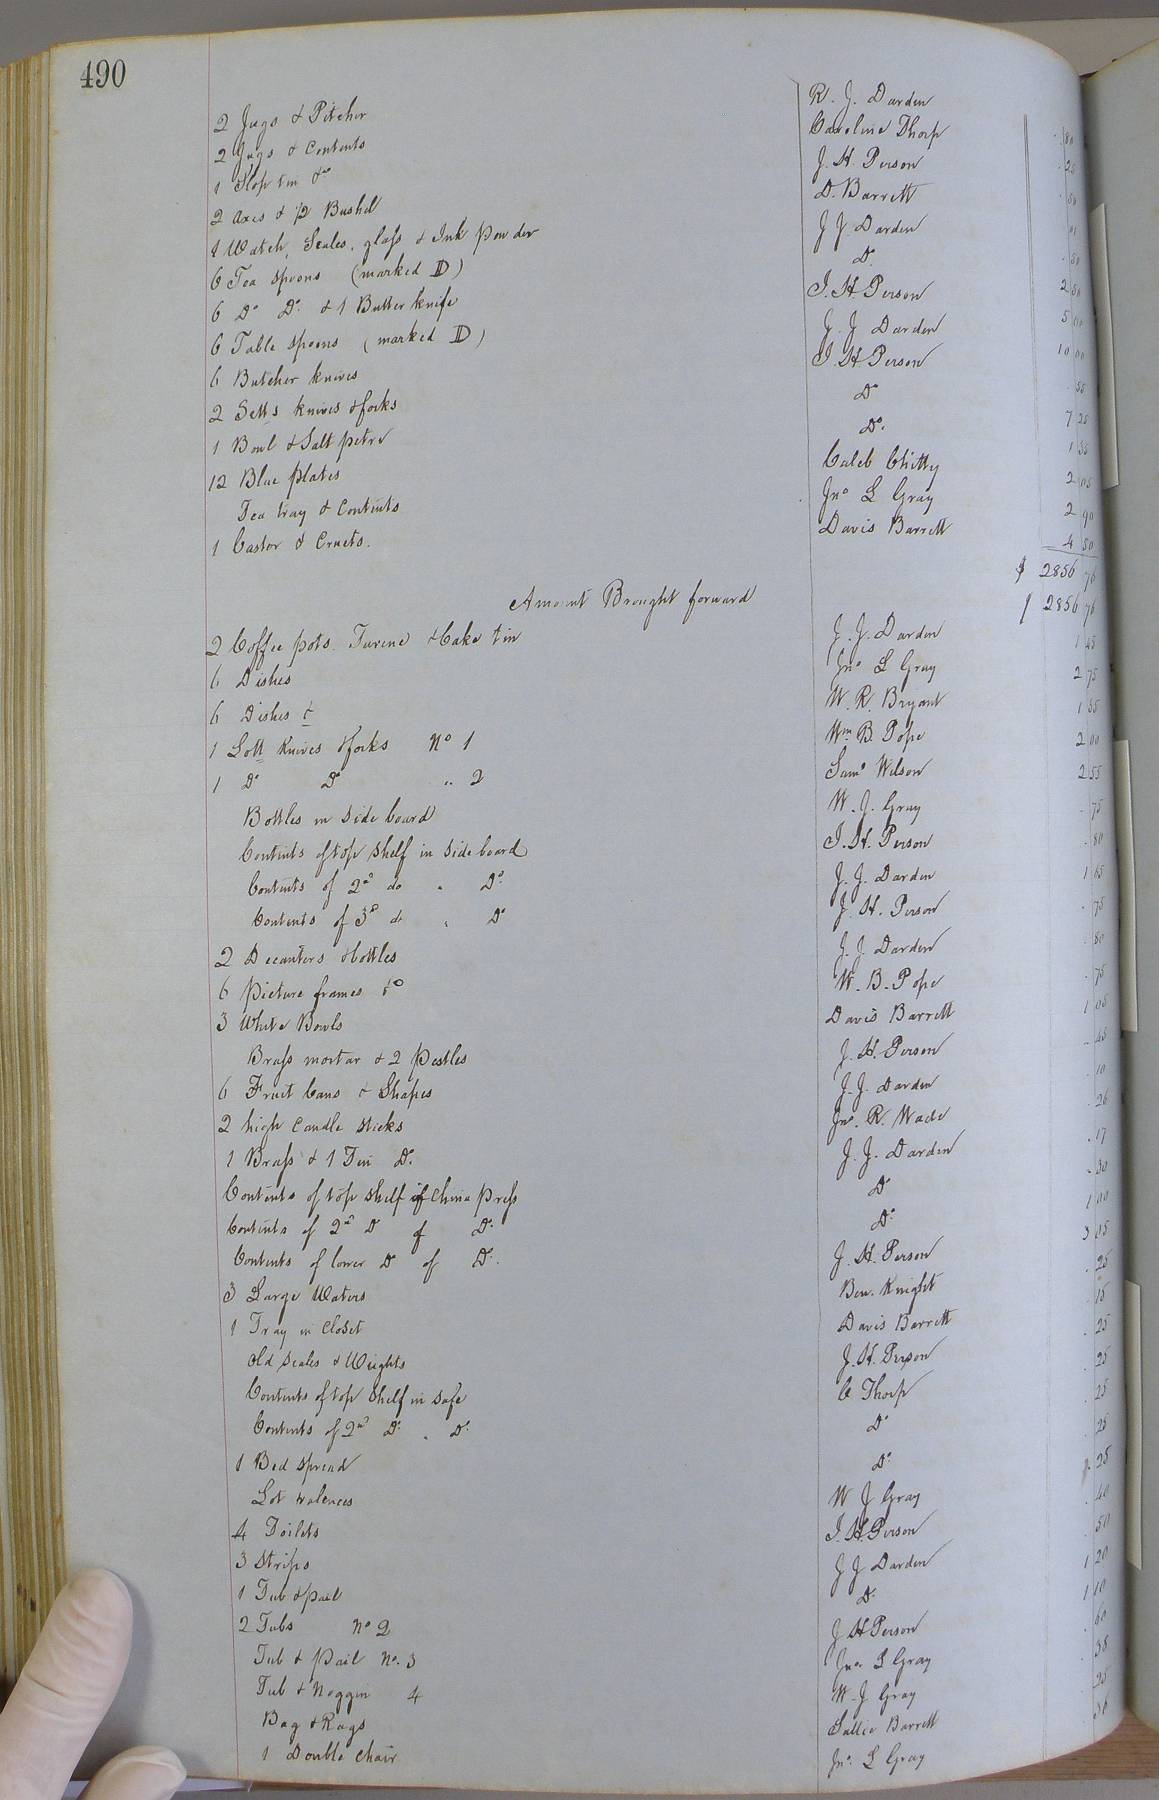 490
2 Jugs & Pitcher R. J. Darden 80
2 Jugs & Contents Caroline Thorp 25
1 Slop tin &c J. H. Person 50
2 Axes & 1/2 Bushel D. Barrett
1 Watch, Scales, glass & Ink powder J J. Darden 50
6 Tea spoons (marked D) Do. 2 50
6 Do Do. & 1 Butter knife J. H. Person 5 00
6 Table spoons (marked D) J. J Darden 10 00
6 Butcher knives J. H. Person 55
2 Setts knives & forks Do 7 25
1 Bowl & Salt petre Do. 1 35
12 Blue plates Caleb Chitty 2 05
Tea tray & Contents Jno L Gray 2 90
1 Castor & Cruets. Davis Barrett 4 50
$ 2856 76
Amount Brought forward $ 2856 76
2 Coffee pots. Turene & Cake tin J. J. Darden 1 45
6 Dishes Jno L Gray 2 75
6 Dishes &c W. R. Bryant 1 35
1 Sett Knives & forks No 1 Wm B. Pope 2 00
1 Do Do " 2 Saml Wilson 2 55
Bottles in side board W. J. Gray 75
Contents of top shelf in side board J. H. Person 80
Contents of 2nd do " Do. J. J. Darden 1 65
Contents of 3d do " Do J. H. Person 75
2 Decanters & bottles J. J. Darden 80
6 Picture frames &c W. B. Pope 75
3 White Bowls Davis Barrett 1 05
Brass mortar & 2 Pestles J. H. Person 45
6 Fruit Cans & Shapes J. J. Darden 10
2 high Candle sticks Jno. R. Wade 26
1 Brass & 1 Tin Do. J. J. Darden 17
Contents of top shelf of China press Do 30
Contents of 2nd Do of Do. Do. 1 00
Contents of lower Do of Do. J. H. Person 3 05
3 Large Waters Ben. Knight 25
1 Tray in Closet Davis Barrett 15
Old scales & Weights J. H. Person 25
Contents of top shelf in safe C Thorp 25
Contents of 2nd Do. " Do. Do 25
1 Bed spread Do. 25
Lot valences W J Gray 25
4 Toilets J. H. Person 40
3 Strips J J Darden 50
1 Tub & pail Do. 1 20
2 Tubs No 2 J H Person 1 10
Tub & Pail No. 3 Jno. L Gray 60
Tub & Noggin 4 W. J Gray 38
Bag & Rags Sallie Barrett 25
1 Double chair Jno. L Gray